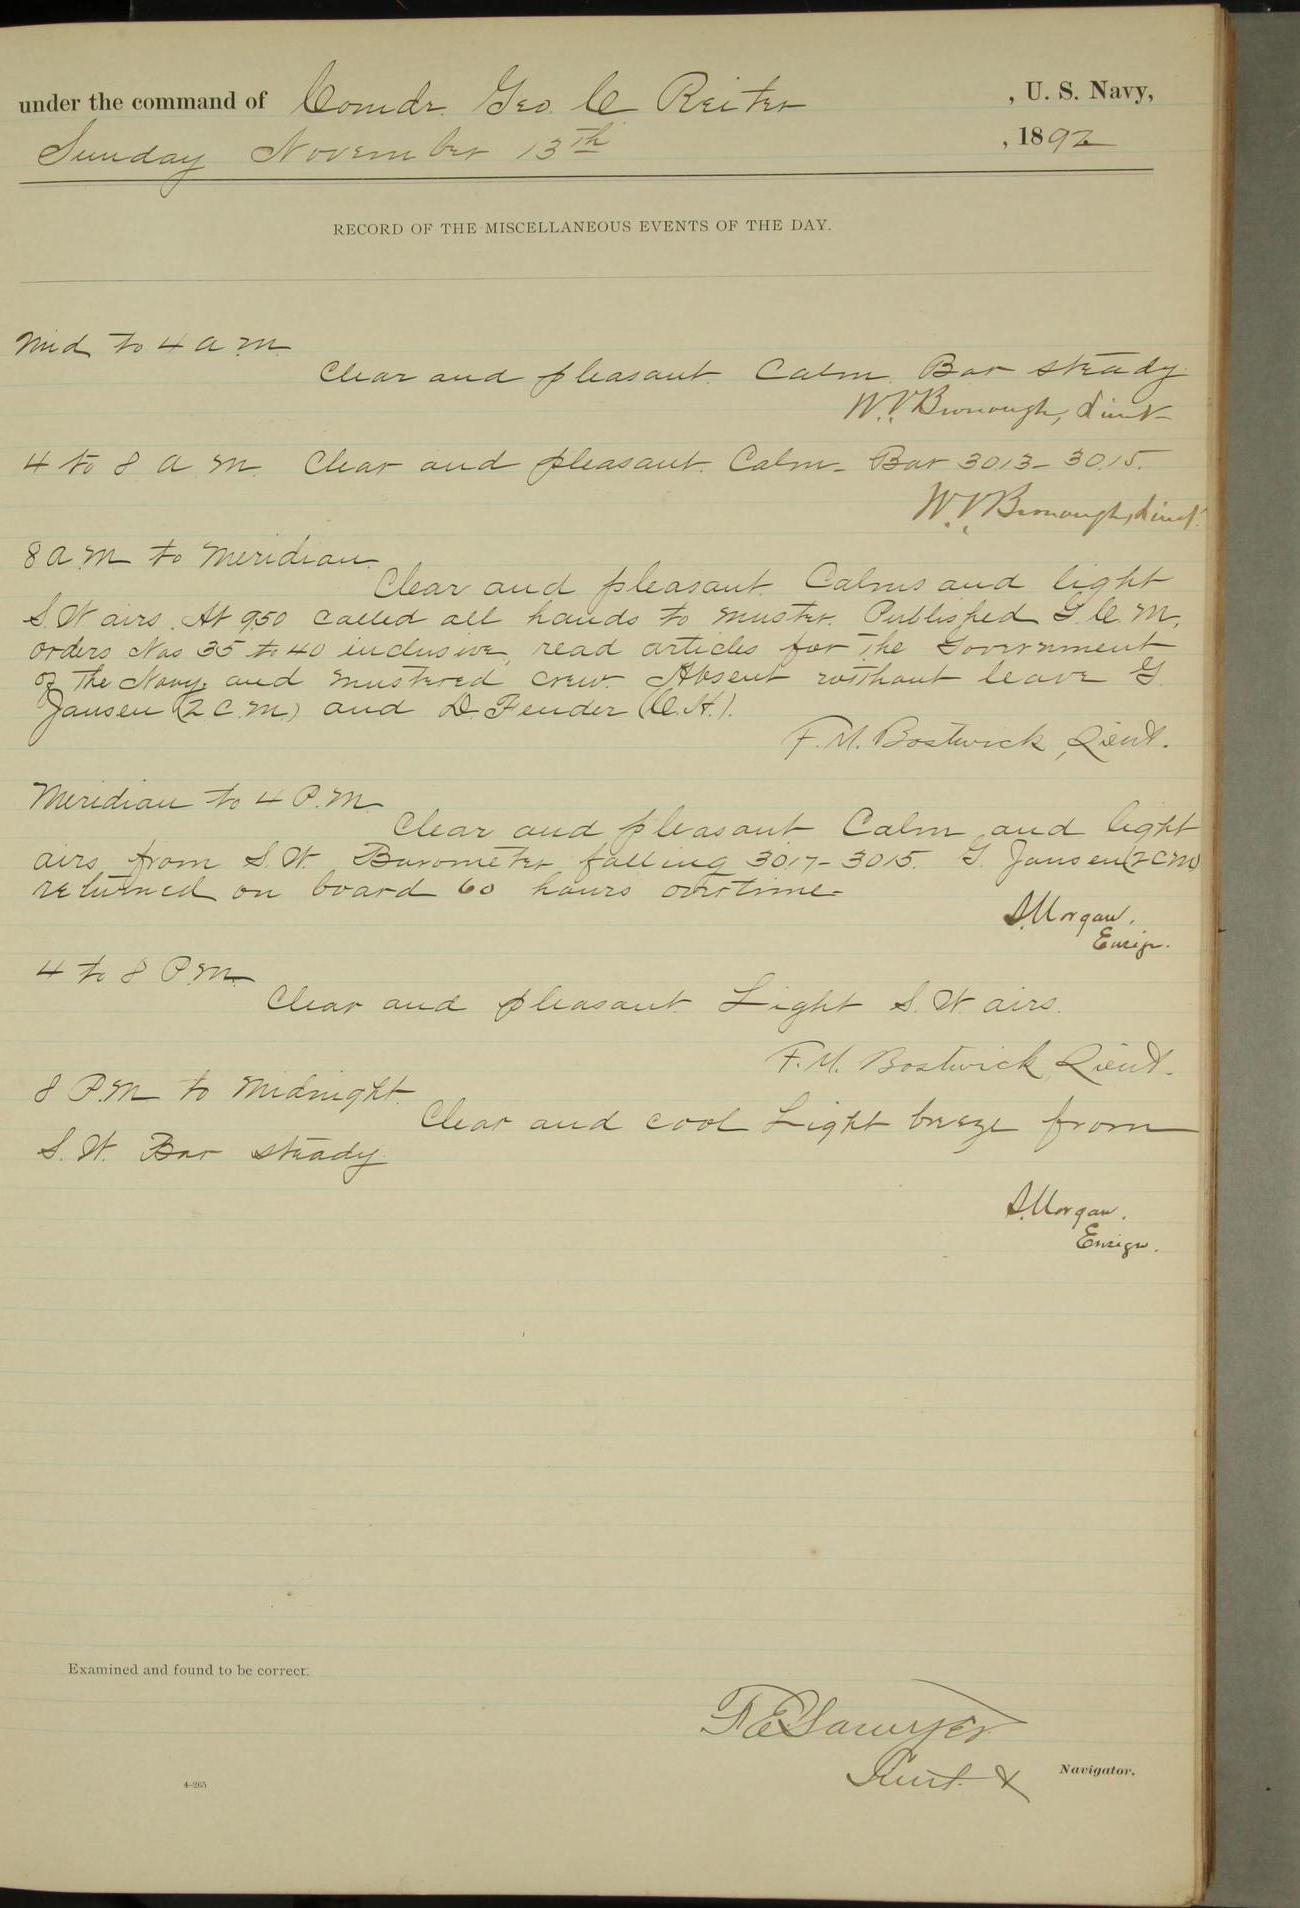 under the command of Comdr. Geo. C Reiter , U. S. Navy,
Sunday November 13th , 1892
RECORD OF THE MISCELLANEOUS EVENTS OF THE DAY.
Mid to 4 a m
Clear and pleasant. Calm. Bar steady.
W.V. Bronaugh, Lieut
4 to 8 a m Clear and pleasant. Calm. Bar 30.13 - 30.15.
W.V. Bronaugh, Lieut.
8 a m to Meridian.
Clear and pleasant. Calms and light
S W airs. At 9.50 called all hands to muster. Published G. C. M.
orders Nos 35 to 40 inclusive, read articles for the Government
of the Navy, and mustered crew. Absent without leave G.
Jansen (2 C. M.) and D. Fender (C. H.).
F. M. Bostwick, Lieut.
Meridian to 4 P. M.
Clear and pleasant Calm and light
airs from S. W. Barometer falling 30.17 - 30.15. G. Jansen (2 C M)
returned on board 60 hours overtime.
S. Morgan.
Ensign.
4 to 8 P. M.
Clear and pleasant. Light S. W. airs.
F. M. Bostwick, Lieut.
8 P.M to Midnight.
Clear and cool Light breeze from
S. W. Bar steady.
S. Morgan.
Ensign.
Examined and found to be correct.
F E Sawyer
Lieut. &
Navigator.
4-265